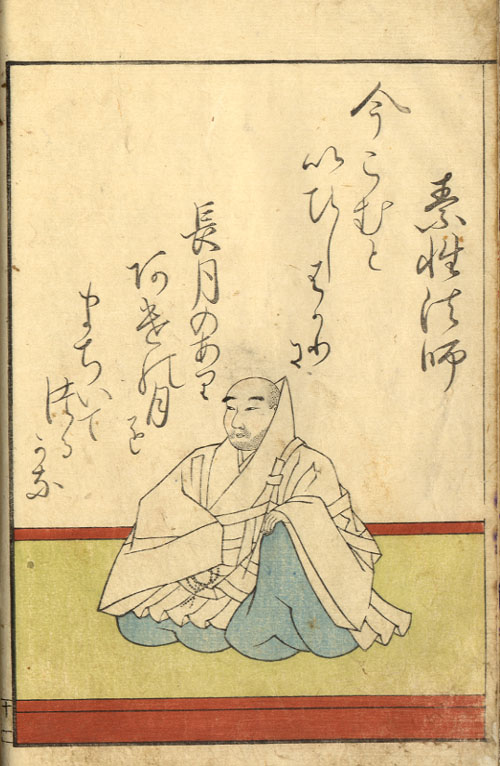 素性法師
今こむと
いひしはかりに
長月のあり
あけの月を
まちいて
つるかな